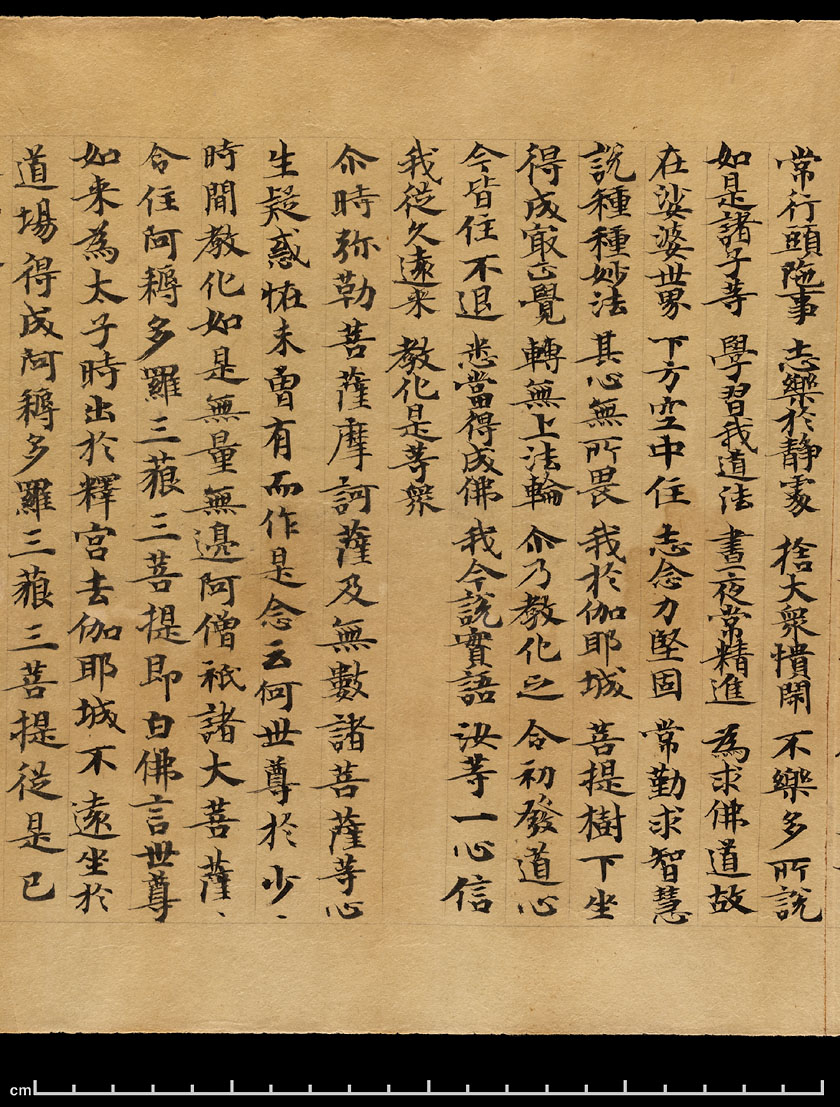 常行頭陁事 志樂於静處 捨大衆憒閙 不樂多所說
如是諸子等 學習我道法 晝夜常精進 為求佛道故
在娑婆世界 下方空中住 志念力堅固 常勤求智慧
說種種妙法 其心無所畏 我於伽耶城 菩提樹下坐
得成㝡正覺 轉無上法輪 尒乃教化之 令初發道心
今皆住不退 悉當得成佛 我今說實語 汝等一心信
我從久遠来 教化是等衆
尒時弥勒菩薩摩訶薩及無數諸菩薩等心
生疑惑恠未曽有而作是念云何世尊於少、
時間教化如是無量無邊阿僧祇諸大菩薩、
令住阿耨多羅三藐三菩提即白佛言世尊
如来為太子時出於釋宮去伽耶城不遠坐於
道場得成阿耨多羅三藐三菩提從是已